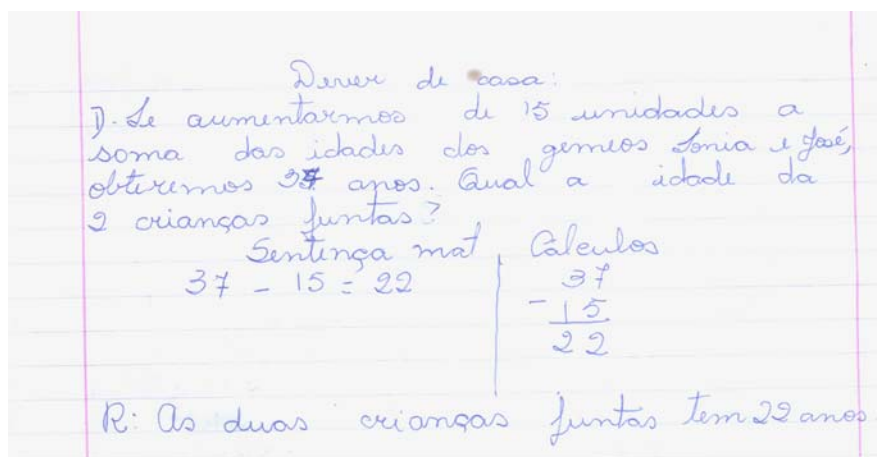 Dever de casa:
1). Se aumentarmos de 15 unidades a
soma das idades dos gemeos Sonia e José,
obteremos 37 anos. Qual a idade da
2 crianças juntas?
Sentença mat Cálculos
37 - 15 = 22 37
- 15
22
R: As duas crianças juntas tem 22 anos